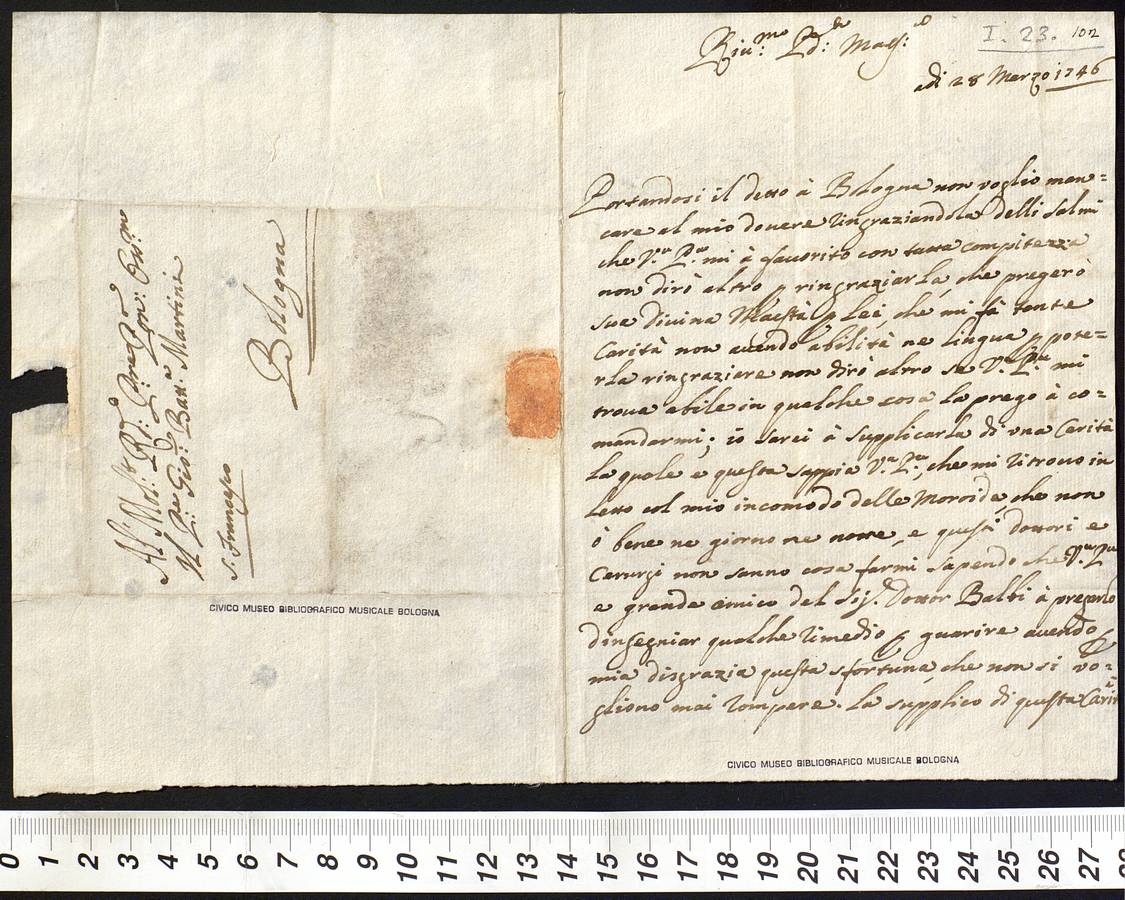 Al Molto Rd: Pre P.
Il P: Pre: Pron: Oss.mo
Il Pre Gio: Batta Martini
S. Francesco
Bologna
CIVICO MUSEO BIBLIOGRAFICO MUSICALE BOLOGNA
I. 23. 102
Riu:mo Pd:e
adi 28 Marzo 1746
Portandosi il detto à Bologna non voglio man=
care al mio douere ringraziandola delli salmi
che V.ra P.tà mi à fauorito con tutta compitezza
non dirò altro p ringraziarla, che pregerò
sua diuina Maestà p lei, che mi fà tante
Carità non auendo abilità ne lingua p pote=
rla ringraziare non dirò altro se V.ra P.tà mi
troua abile in qualche cosa la prego à co=
mandarmi; io sarei à supplicarla di vna Carità
la quale e questa sappia V.ra P.tà, che mi ritrouo in
letto col mio incomodo delle Moroide, che non
ò bene ne giorno ne notte, e questi dottori e
Cerurgi non sanno cosa farmi sapendo che V.ra P.tà
e grande amico del Sig. Dottor Balbi à pregarlo
d'insegniar qualche rimedio p guarire auendo p
mia disgrazia questa sfortuna, che non si vo=
gliono mai rompere. la supplico di questa Carità
CIVICO MUSEO BIBLIOGRAFICO MUSICALE BOLOGNA
0 1 2 3 4 5 6 7 8 9 10 11 12 13 14 15 16 17 18 19 20 21 22 23 24 25 26 27